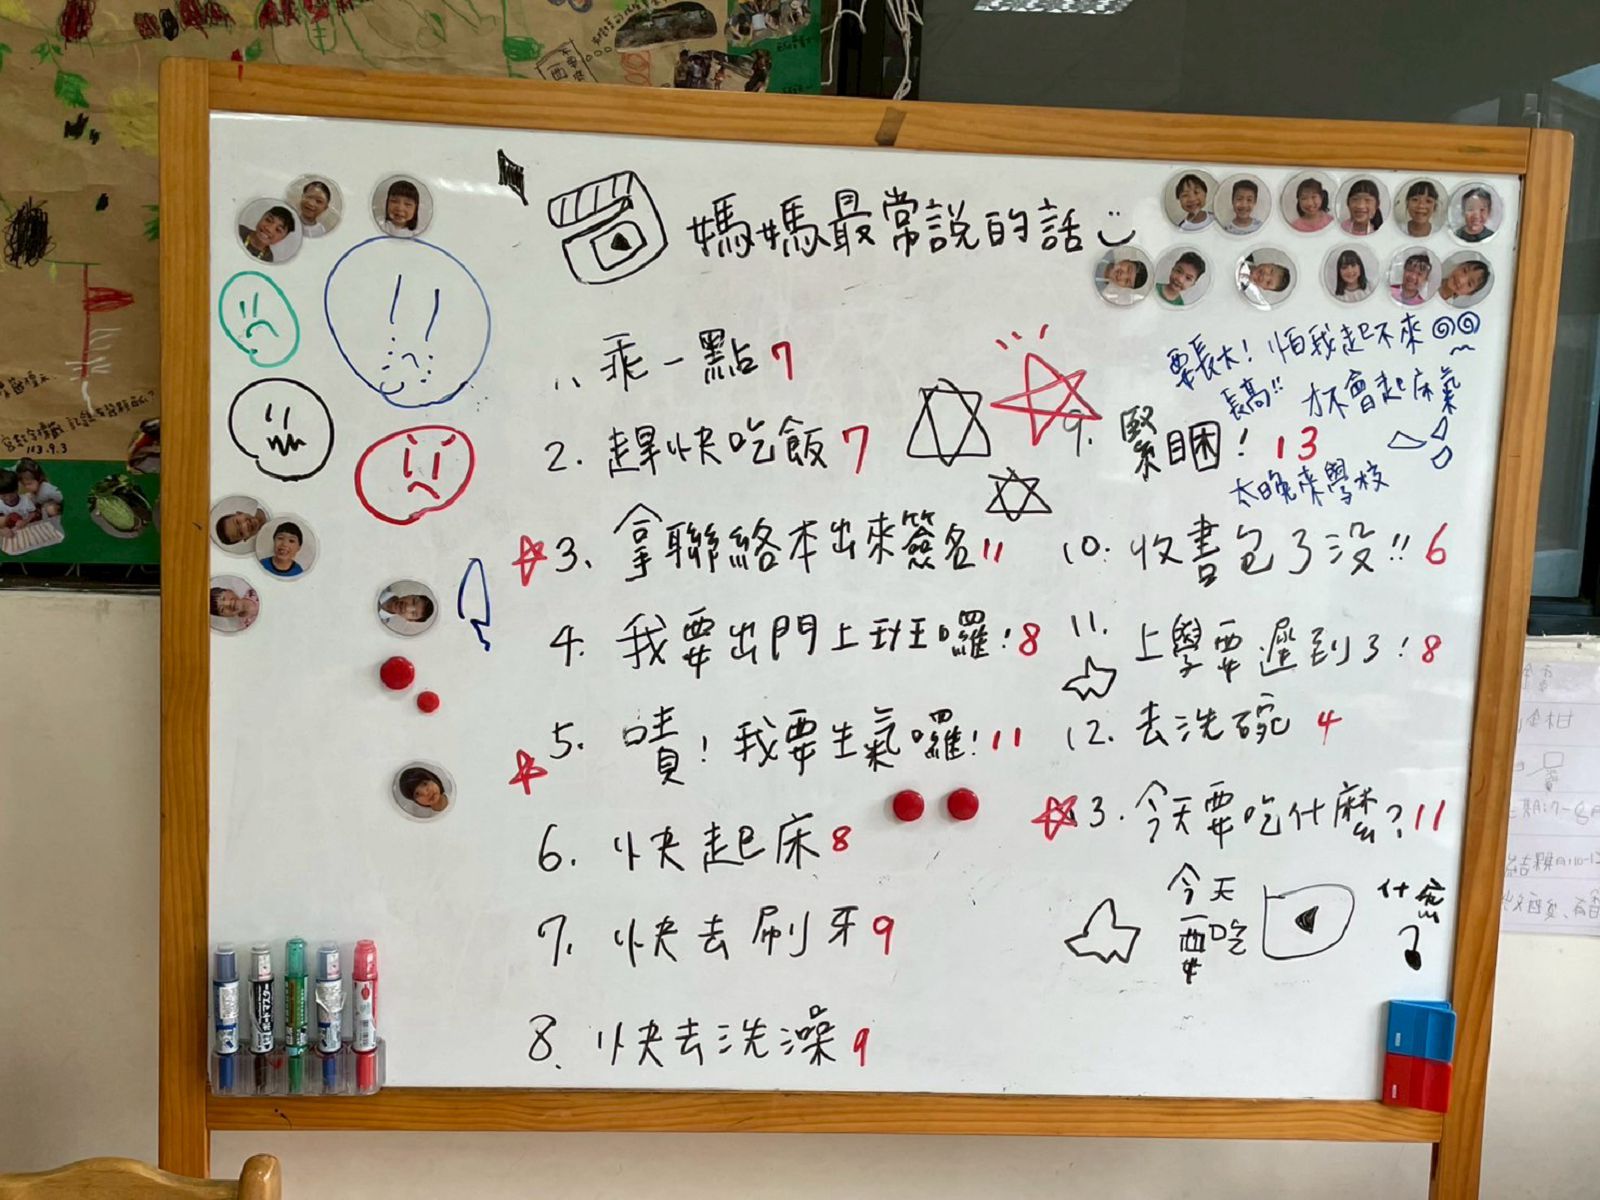 媽媽最常說的話
1. 乖一點 7
2. 趕快吃飯 7
3. 拿聯絡本出來簽名 11
4. 我要出門上班囉! 8
5. 嘖! 我要生氣囉! 11
6. 快起床 8
7. 快去刷牙 9
8. 快去洗澡 9
要長大! 怕我起不來
長高!! 才不會起床氣
9. 緊睏! 13
太晚來學校
10. 收書包了没!! 6
11. 上學要遲到了! 8
12. 去洗碗 4
13. 今天要吃什麼? 11
今天
要吃
什麼
?
113.9.3